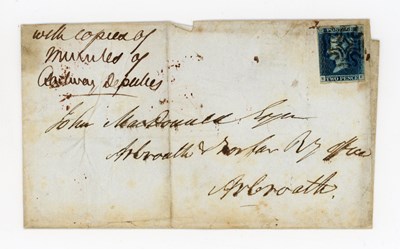 with copies of
minutes of
Railway Deputies
POSTAGE
TWO PENCE
John MacDonald Esqr
Arbroath & Forfar Ry Office
Arbroath.